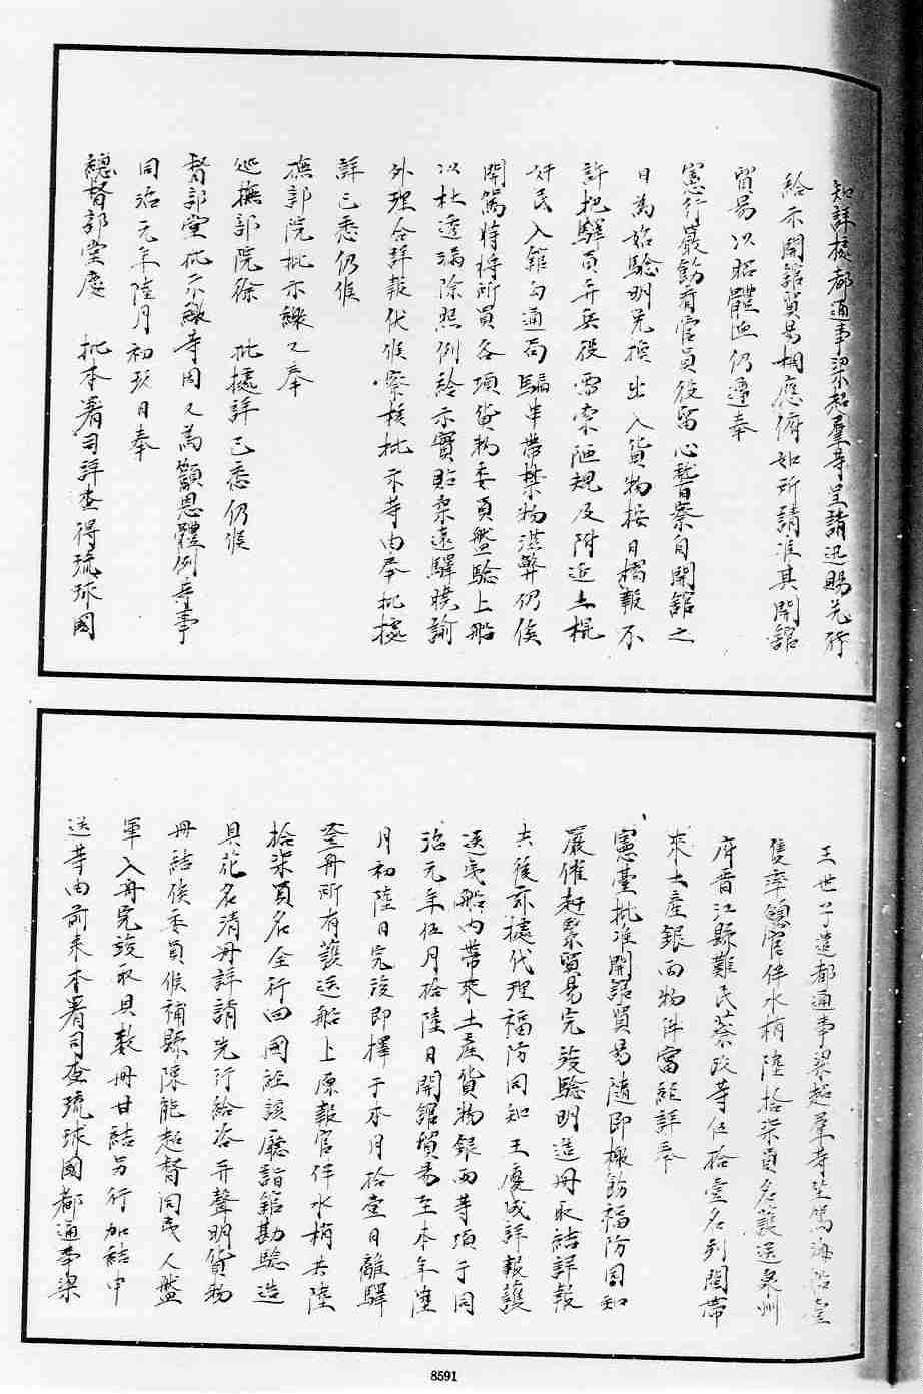 知詳據都通事梁超羣等呈請迅賜先行
給示開館貿易相應俯如所請准其開館
貿易以昭體恤仍遵奉
憲行嚴飭看管員役留心稽察自開館之
日為始驗明兌換出入貨物按日摺報不
許把驛員弁兵役需索陋規及附近土棍
奸民入館勾通局騙串帶禁物滋弊仍俟
開駕時將所買各項貨物委員盤驗上船
以杜透漏除照例給示實貼柔遠驛曉諭
外理合詳報伏候察核批示等由奉批據
詳已悉仍候
撫部院批示繳又奉
巡撫部院徐 批據詳已悉仍候
督部堂批示繳等因又為籲恩體例等事
同治元年陸月初玖日奉
總督部堂慶 批本署司詳查得琉球國
王世子遣都通事梁超羣等坐駕海船壹
隻率領官伴水梢陸拾柒員名護送泉州
府晉江縣難民蔡玖等伍拾壹名到閩帶
來土產銀兩物件當經詳奉
憲臺批准開館貿易隨即檄飭福防同知
嚴催赶緊貿易完竣驗明造冊取結詳報
去後茲據代理福防同知王慶成詳報護
送夷船內帶來土產貨物銀兩等項于同
治元年伍月拾陸日開館貿易至本年陸
月初陸日完竣即擇于本月拾壹日離驛
登舟所有護送船上原報官伴水梢共陸
拾柒員名全行回國經該廳詣館勘驗造
具花名清冊詳請先行給咨并聲明貨物
冊結俟委員候補縣陳能超督同夷人盤
運入舟完竣取具數冊甘結另行加結申
送等由前來本署司查琉球國都通事梁
8591